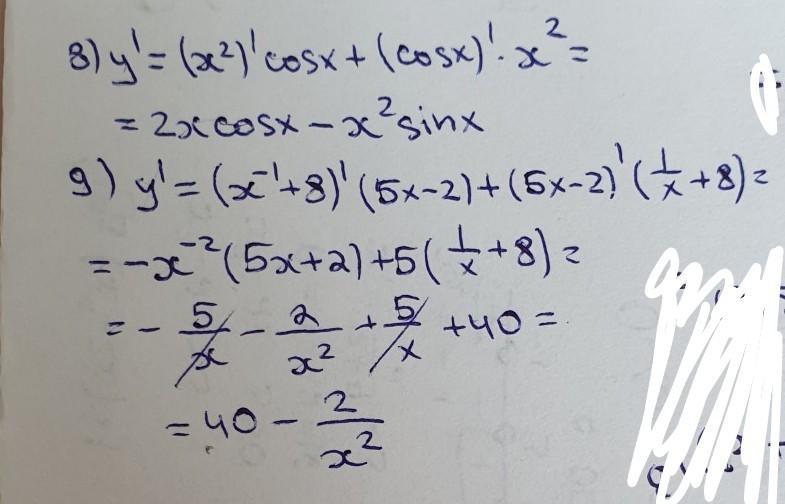 8) y' = (x²)' cosx + (cosx)' · x² =
= 2x cosx - x² sinx
9) y' = (x⁻¹+8)' (5x-2) + (5x-2)' (1/x +8) =
= -x⁻² (5x+2) + 5 (1/x +8) =
= - 5/x - 2/x² + 5/x + 40 =
= 40 - 2/x²